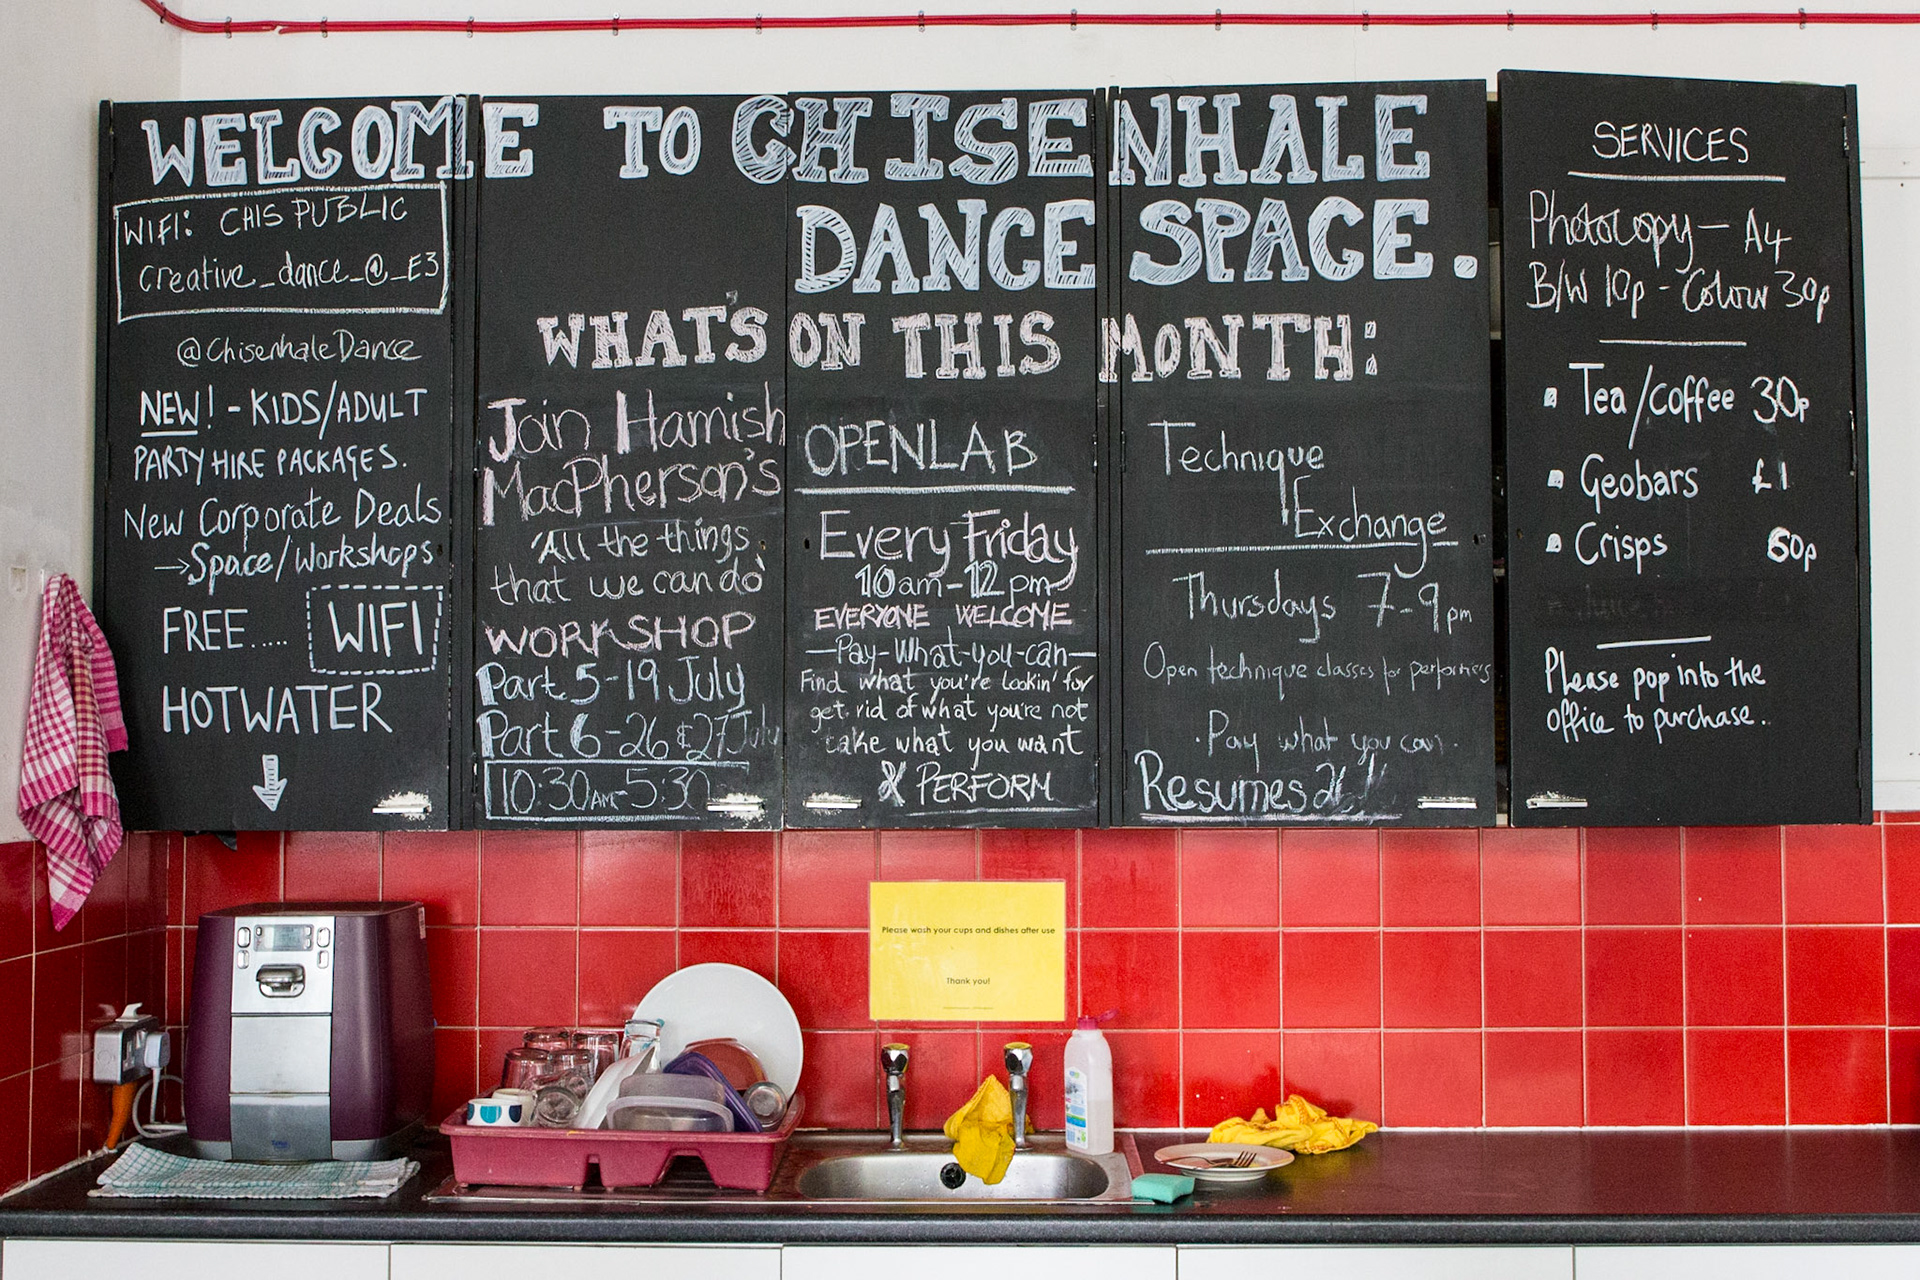 WELCOME TO CHISENHALE
DANCE SPACE.
WIFI: CHIS PUBLIC
creative_dance_@_E3
@ChisenhaleDance
NEW! - KIDS/ADULT
PARTY HIRE PACKAGES.
New Corporate Deals
→Space/Workshops
FREE..... WIFI
HOTWATER
WHAT'S ON THIS MONTH:
Join Hamish
MacPherson's
'All the things
that we can do'
WORKSHOP
Part 5-19 July
Part 6-26 & 27 July
10:30AM-5:30
OPENLAB
Every Friday
10am-12pm
EVERYONE WELCOME
-Pay-What-you-can-
Find what you're lookin' for
get rid of what you're not
take what you want
& PERFORM
Technique
Exchange
Thursdays 7-9pm
Open technique classes for performers
·Pay what you can·
Resumes
SERVICES
Photocopy - A4
B/W 10p - Colour 30p
Tea/coffee 30p
Geobars £1
Crisps 60p
Please pop into the
office to purchase..
Please wash your cups and dishes after use
Thank you!